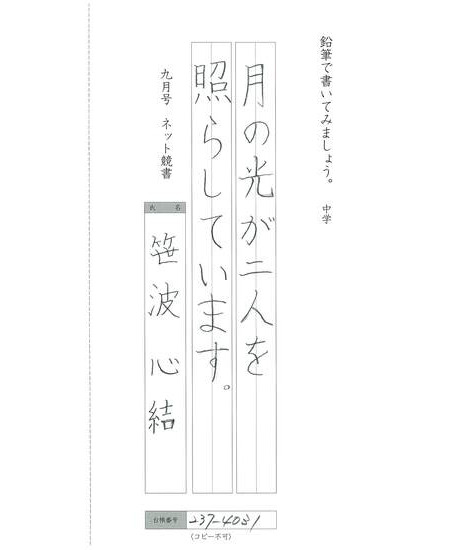 鉛筆で書いてみましょう。 中学
月の光が二人を
照らしています。
九月号 ネット競書
氏名
笹波 心結
台帳番号 237-4031
(コピー不可)